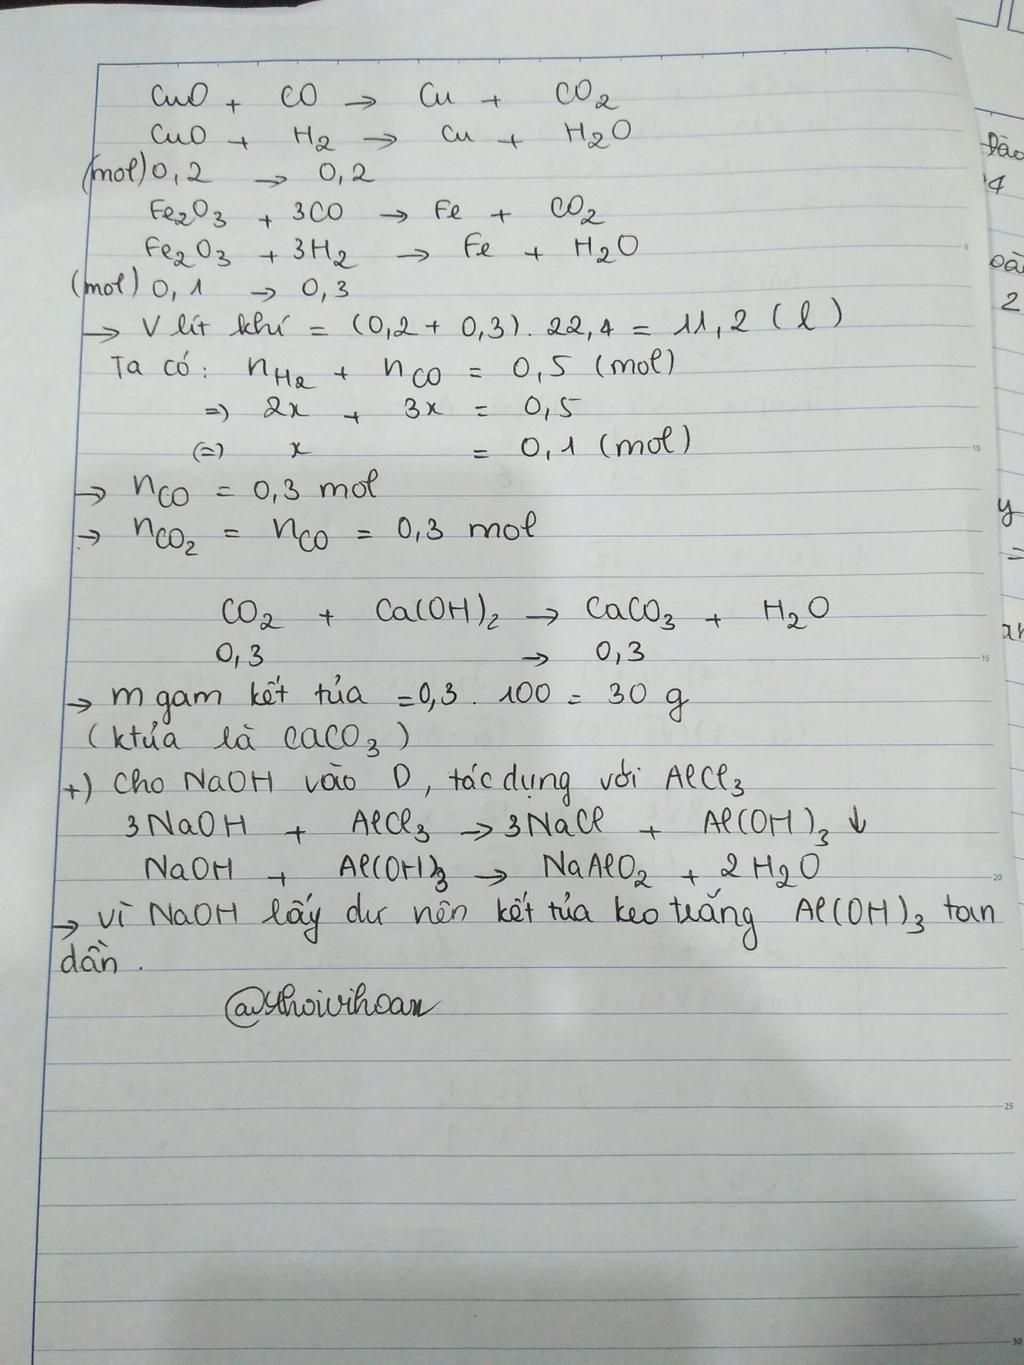 CuO + CO → Cu + CO2
CuO + H2 → Cu + H2O
(mol) 0,2 → 0,2
Fe2O3 + 3CO → Fe + CO2
Fe2O3 + 3H2 → Fe + H2O
(mol) 0,1 → 0,3
→ V lít khí = (0,2 + 0,3). 22,4 = 11,2 (l)
Ta có: nH2 + nCO = 0,5 (mol)
=) 2x + 3x = 0,5
(=) x = 0,1 (mol)
→ nCO = 0,3 mol
→ nCO2 = nCO = 0,3 mol
CO2 + Ca(OH)2 → CaCO3 + H2O
0,3 → 0,3
→ m gam kết tủa = 0,3. 100 = 30 g
(ktủa là CaCO3)
+) Cho NaOH vào D, tác dụng với AlCl3
3NaOH + AlCl3 → 3NaCl + Al(OH)3 ↓
NaOH + Al(OH)3 → NaAlO2 + 2H2O
→ vì NaOH lấy dư nên kết tủa keo trắng Al(OH)3 tan
dần.
5
10
15
20
25
30
2
y
=